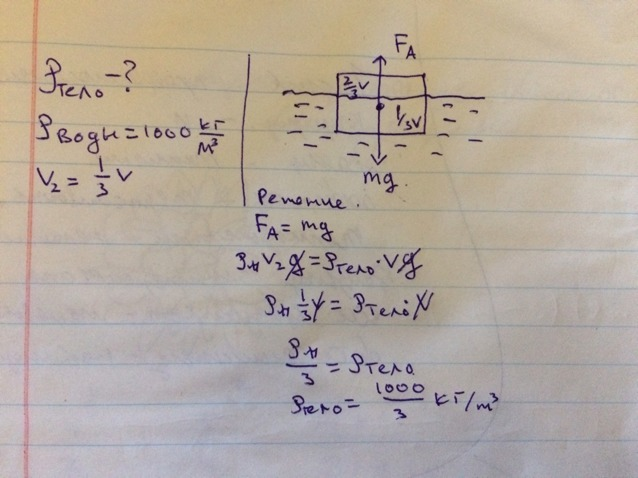 ρтело - ?
ρводы = 1000 кг/м³
V₂ = 1/3 V
F_A
2/3 V
1/3 V
mg
Решение.
F_A = mg
ρж V₂ g = ρтело · V g
ρж 1/3 V = ρтело · V
ρж/3 = ρтела
ρтело = 1000/3 кг/м³